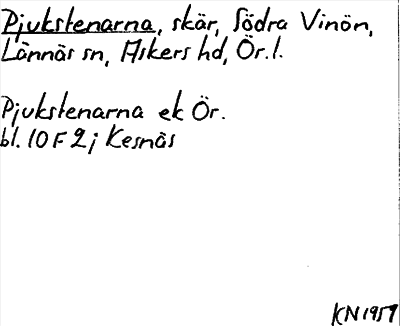 Pjukstenarna, skär, Södra Vinön,
Lännäs sn, Askers hd, Ör.l.
Pjukstenarna ek Ör.
bl. 10 F 2 j Kesnäs
KN 1957